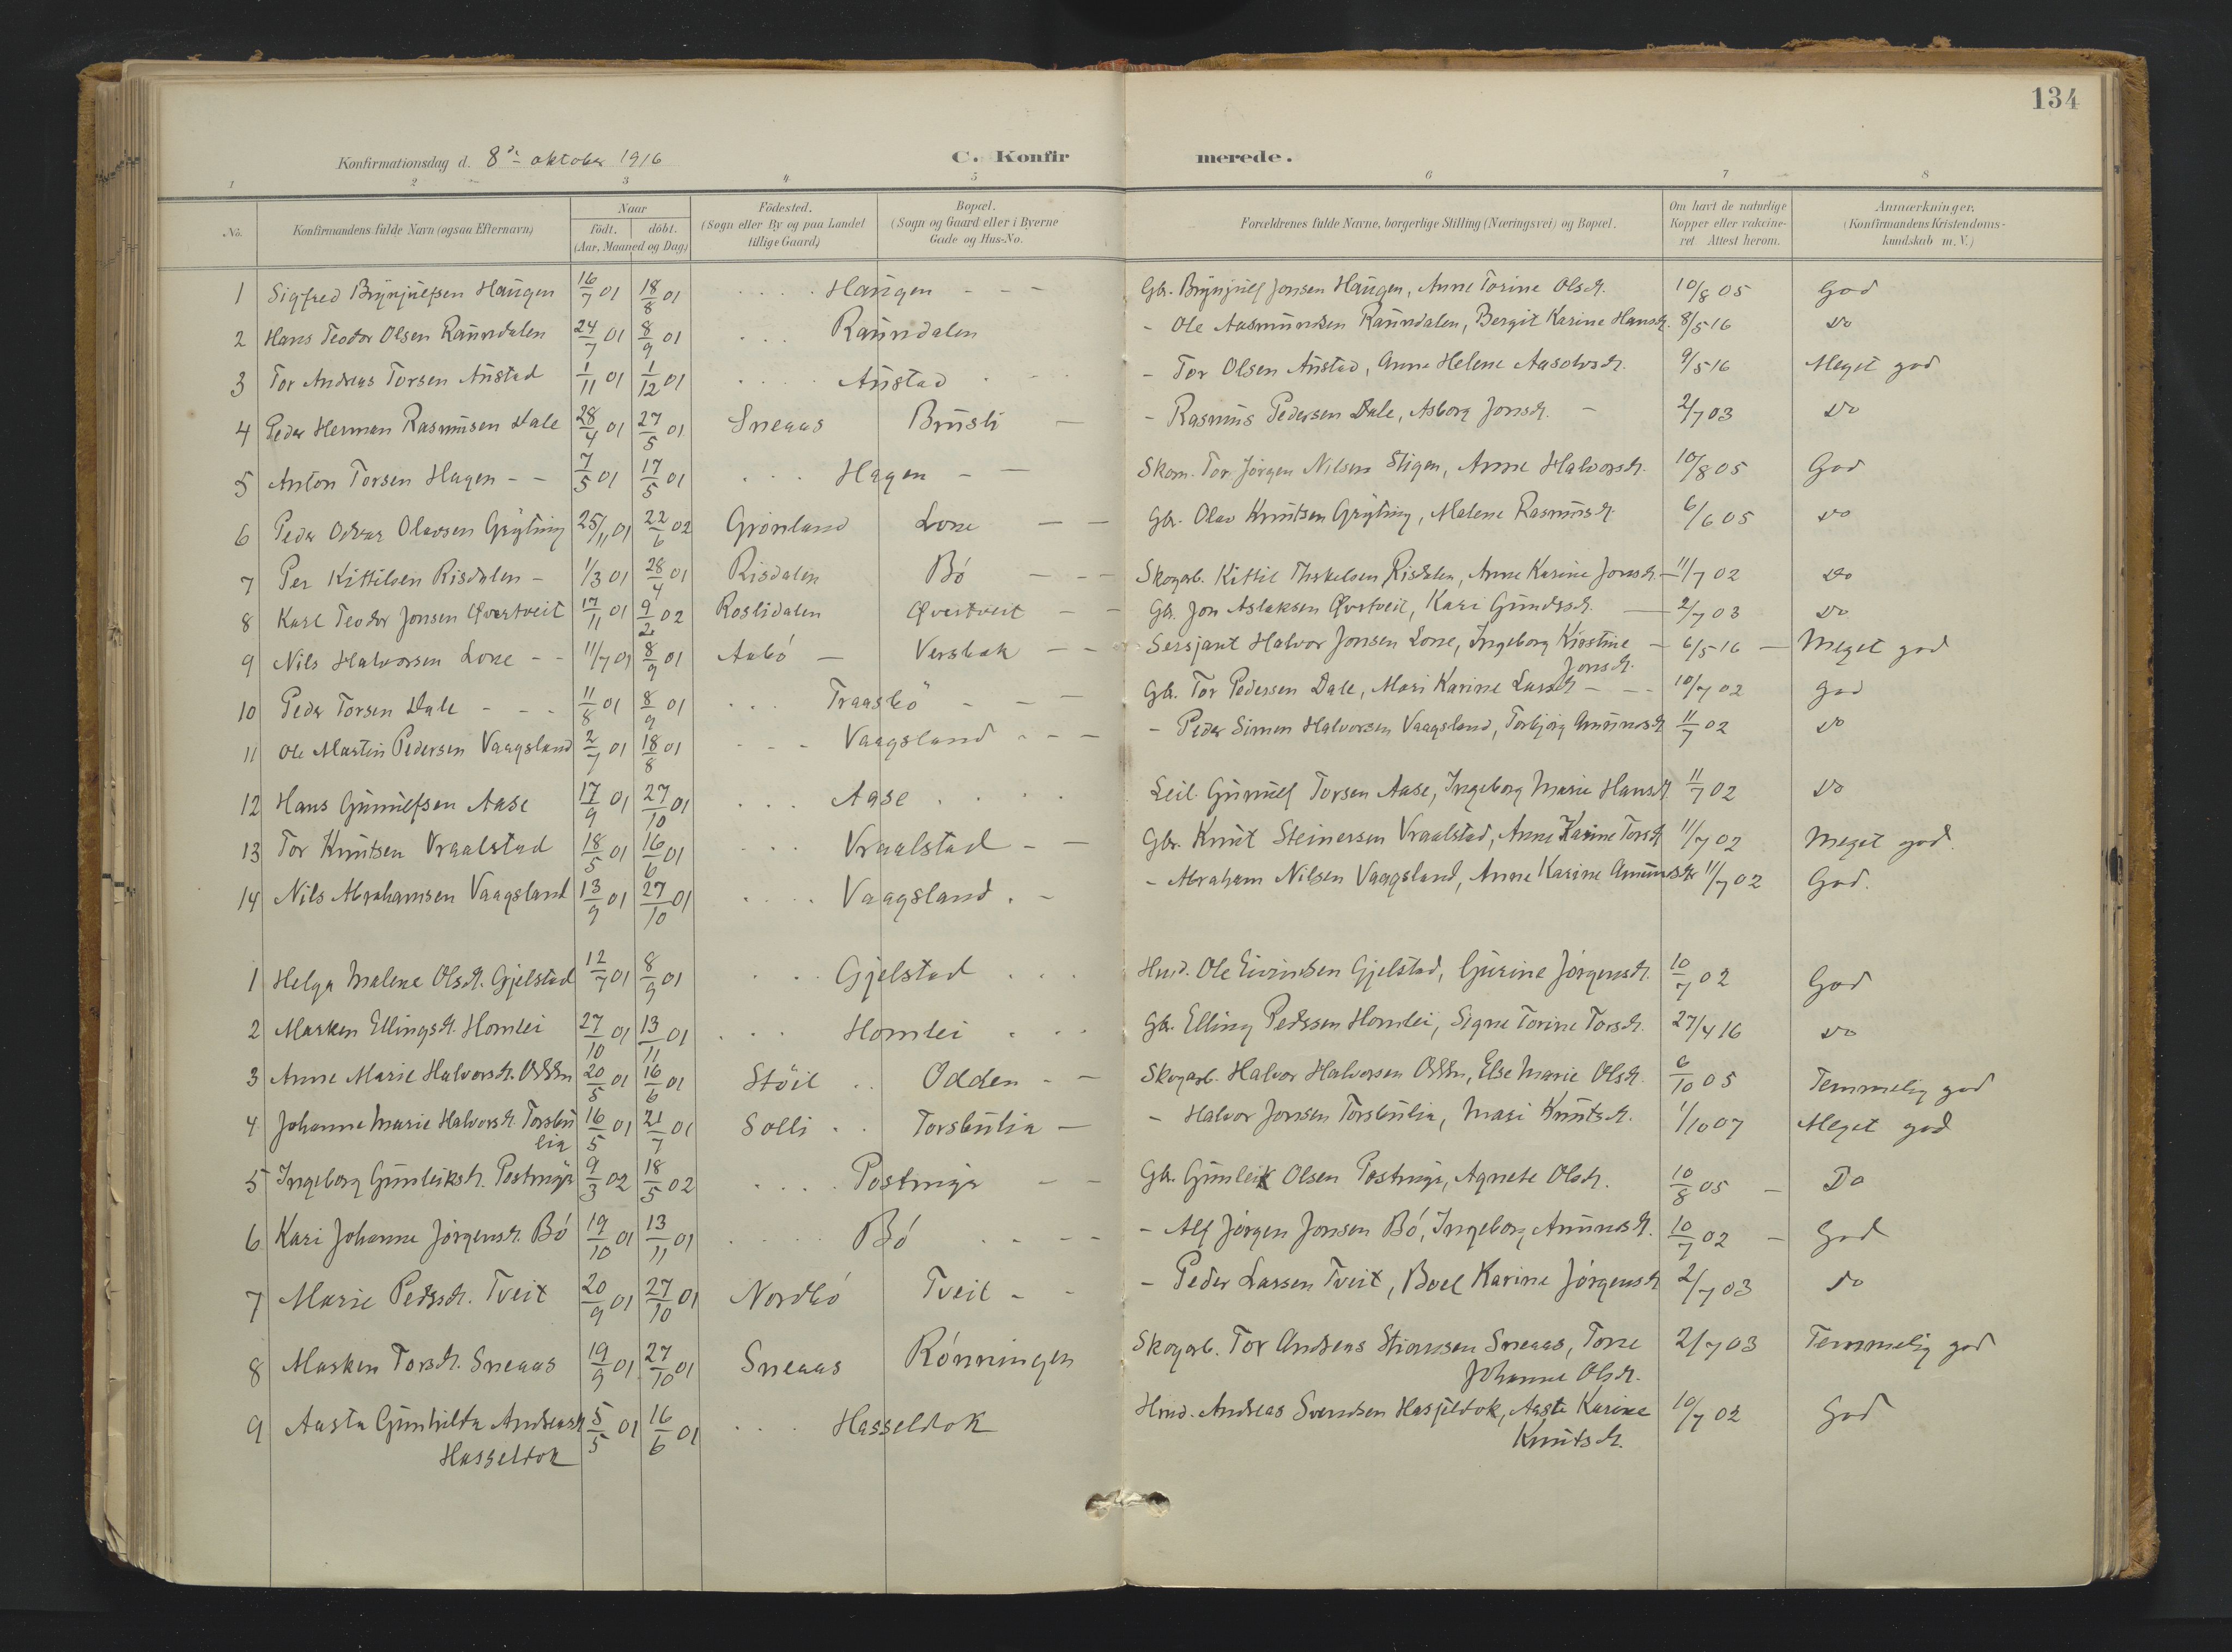 134
Konfirmationsdag d. 8de oktober 1916 C. Konfir merede.
1 2 3 4 5 6 7 8
No. Konfirmandens fulde Navn (ogsaa Efternavn) Naar födt. döbt. (Aar, Maaned og Dag) Födested. (Sogn eller By og paa Landet tillige Gaard) Bopæl. (Sogn og Gaard eller i Byerne Gade og Hus-No. Forældrenes fulde Navne, borgerlige Stilling (Næringsvei) og Bopæl. Om havt de naturlige Kopper eller vakcineret Attest herom. Anmærkninger. (Konfirmandens Kristendomskundskab m. V.)
1 Sigfred Brynjulfsen Haugen 16/7 01 18/8 01 .... Haugen - - - Gbr. Brynjulf Jonsen Haugen, Anne Torine Olsdr. 10/8 05 God
2 Hans Teodor Olsen Raundalen 24/7 01 8/9 01 ... Raundalen - Ole Aasmundsen Raundalen, Bergit Karine Hansdr. 8/5 16 Do
3 Tor Andreas Torsen Austad 1/11 01 1/12 01 .... Austad - Tor Olsen Austad, Anne Helene Aasolvsdr. 9/5 16 Meget god
4 Peder Herman Rasmusen Dale 28/4 01 27/5 01 Sneaas Brusli - - Rasmus Pedersen Dale, Asborg Jonsdr. - 2/7 03 Do
5 Anton Torsen Hagen - - 7/5 01 17/5 01 ... Hagen - - Skom. Tor Jørgen Nilsen Stigen, Anne Halvorsdr. 10/8 05 God
6 Peder Odvar Olavsen Grøyting 25/11 01 22/6 02 Grönland Lone - - Gbr. Olav Knutsen Grøyting, Malene Rasmusdr. 6/6 05 Do
7 Per Kittilsen Risdalen - 1/3 01 28/4 01 Risdalen Bó - - - Skogarb. Kittil Thskelsen Risdalen, Anne Karine Jonsdr. - 11/7 02 Do
8 Karl Teodor Jonsen Qvertveit 17/11 01 9/2 02 Roslidalen Qvertveit - - Gb. Jon Aslaksen Qvertveit, Kari Gundersdr. - 2/7 03 Do
9 Nils Halvorsen Lone - - 11/7 01 8/9 01 Aabó - Versbak - - Sersjant Halvor Jonsen Lone, Ingeborg Kirstine - 6/5 16 - Meget god
Jonsdr.
10 Peder Torsen Dale - - - 11/8 01 8/9 01 ... Traasbó - - - Gb. Tor Pedersen Dale, Mari Karine Larsdr - - - 10/7 02 god
11 Ole Martin Pedersen Vaagsland 2/7 01 18/8 01 - - - Vaagsland - - - - Peder Simen Halvorsen Vaagsland, Torbjørg Amundsdr 11/7 02 Do
12 Hans Gunulfsen Aase 17/9 01 27/10 01 ... Aase .... Leil. Gunulf Torsen Aase, Ingeborg Marie Hansdr. 11/7 02 Do
13 Tor Knutsen Vraalstad 18/5 01 16/6 01 ... Vraalstad - - Gbr. Knut Steinersen Vraalstad, Anne Karine Torsdr 11/7 02 Meget god.
14 Nils Abrahamsen Vaagsland 13/9 01 27/10 01 .... Vaagsland . - - Abraham Nilsen Vaagsland, Anne Karine Amundsdr 11/7 02 God.
1 Helga Malene Olsdr. Gjelstad 12/7 01 8/9 01 .. Gjelstad ... Hmd. Ole Eivindsen Gjelstad, Gurine Jörgensdr. 10/7 02 God
2 Marken Ellingsdr. Homlei 27/10 01 13/11 01 ... Homlei ... Gb. Elling Pedersen Homlei, Signe Torine Torsdr. 27/4 16 Do
3 Anne Marie Halvorsdr. Odden 20/5 01 16/6 01 Stöil .. Odden - - Skogarb. Halvor Halvorsen Odden, Else Marie Olsdr. 6/10 05 Temmelig god
4 Johanne Marie Halvorsdr. Torsbu 16/5 01 21/7 01 Solli .. Torsbulia - - Halvor Jonsen Torsbulia, Mari Knutsdr. 1/10 07 Meget god
lia
5 Ingeborg Gunleiksdr. Postmyr 9/3 02 18/5 02 .... Postmyr - - Gb. Gunleik Olsen Postmyr, Agnete Olsdr. 10/8 05 - Do
6 Kari Johanne Jörgensdr. Bó 19/10 01 13/11 01 ..... Bó .. - - - Alf Jörgen Jonsen Bó, Ingeborg Amundsdr. 10/7 02 - God
7 Marie Pedersdr. Tveit 20/9 01 27/10 01 Nordbó Tveit - - - Peder Larsen Tveit, Boel Karine Jörgensdr 2/7 03 Do
8 Marken Torsdr. Sneaas 19/9 01 27/10 01 Sneaas Rönningen Skogarb. Tor Andreas Stiansen Sneaas, Tone 2/7 03 Temmelig god
Johanne Olsdr.
9 Aasta Gunhilda Andreasdr 5/5 01 16/6 01 .... Hasseldok Hmd. Andreas Svendsen Hasseldok, Aaste Karine 10/7 02 God
Hasseldok Knutsdr.